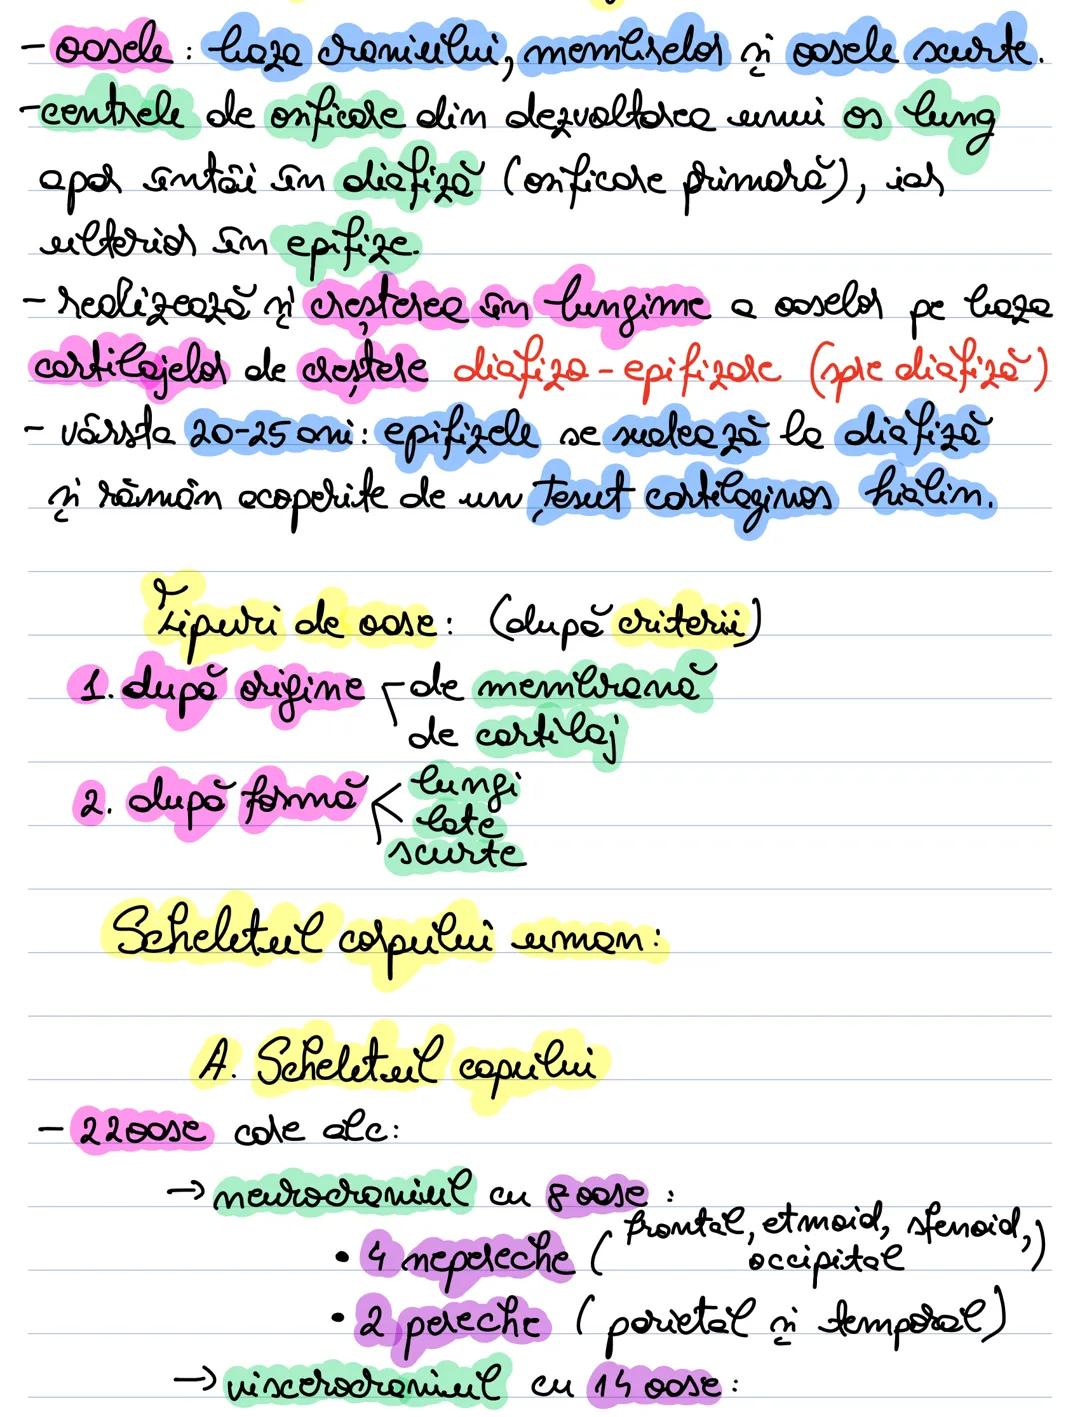 - oasele: baza craniului, membrelor și oasele scurte.
- centrele de osificare din dezvoltarea unui os lung
apar întâi în diafiză (osificare primară), iar
ulterior în epifize.
- realizează și creșterea în lungime a oaselor pe baza
cartilajelor de creștere diafizo-epifizare (spre diafiză)
- vârsta 20-25 ani: epifizele se sudează la diafiză
și rămân acoperite de un țesut cartilaginos hialin.
Tipuri de oase: (după criterii)
1. după origine de membrană
de cartilaj
2. după formă lungi
late
scurte
Scheletul corpului uman:
A. Scheletul capului
- 22 oase care alc:
→ neurocraniul cu 8 oase:
• 4 nepereche (frontal, etmoid, sfenoid,
occipital)
• 2 pereche (parietal și temporal)
→ viscerocraniul cu 14 oase: